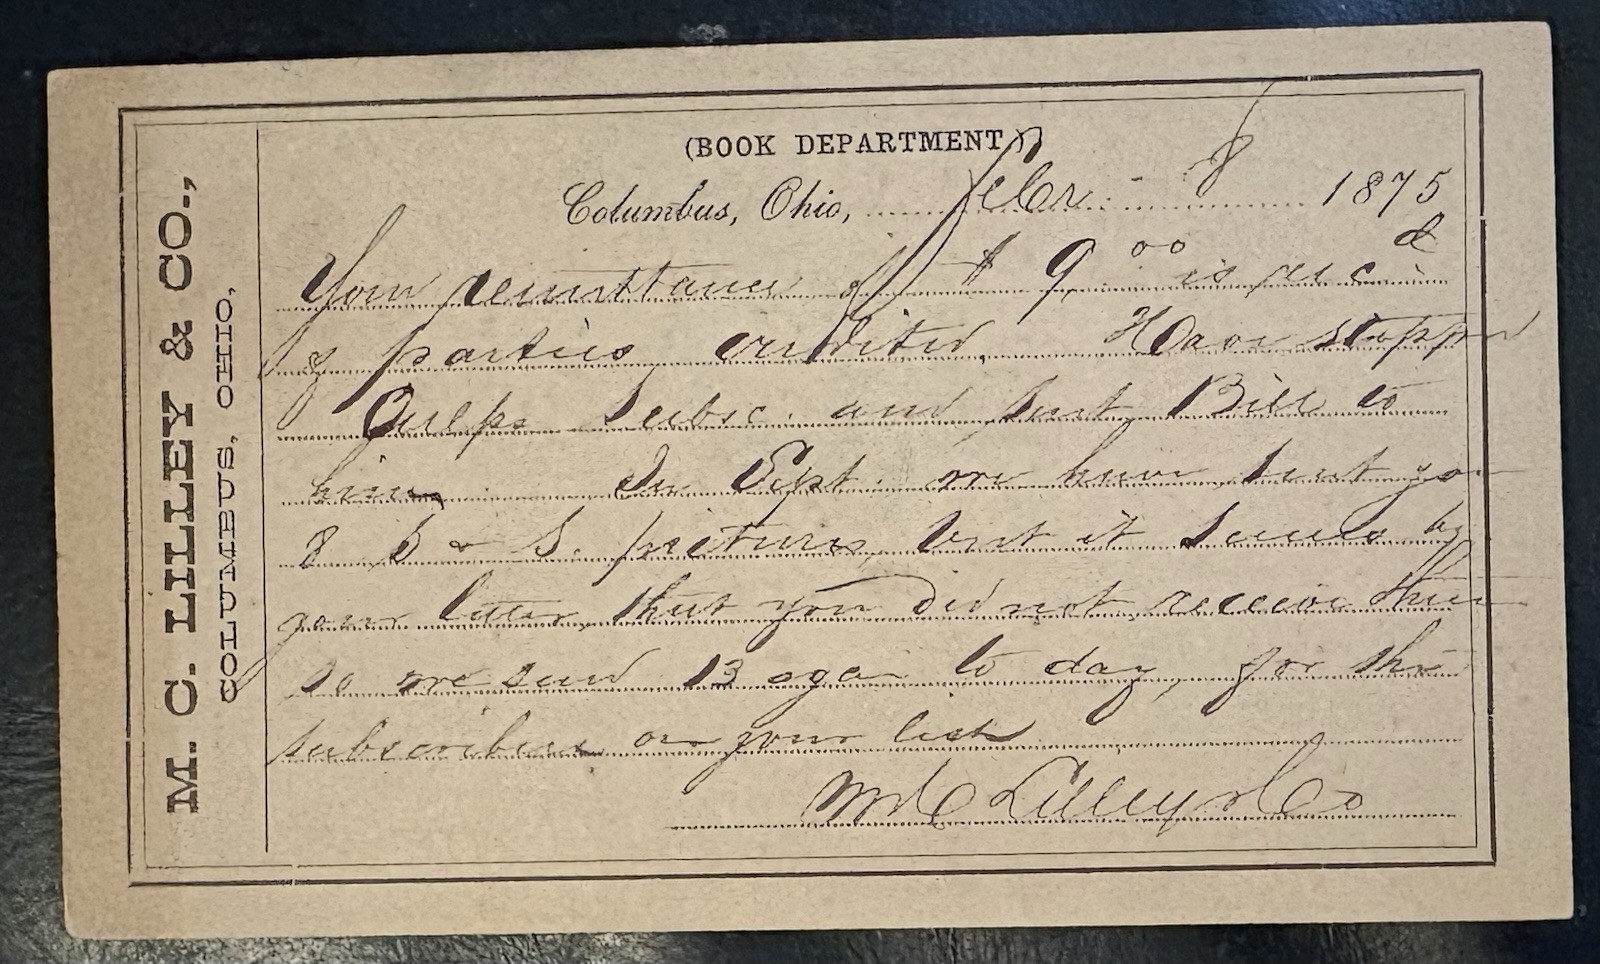 M. C. LILLEY & CO.,
COLUMBUS, OHIO,
(BOOK DEPARTMENT)
Columbus, Ohio, Febr. 8 1875
Your remittance of $9.00 is recd
& parties credited. Have stopped
subsc. and sent Bill to
him. In Sept. we have sent you
8 S & S. pictures, but it seems by
your letter, that you did not receive them
so we send 13 again to day, for the
subscribers on your list
M C Lilley & Co